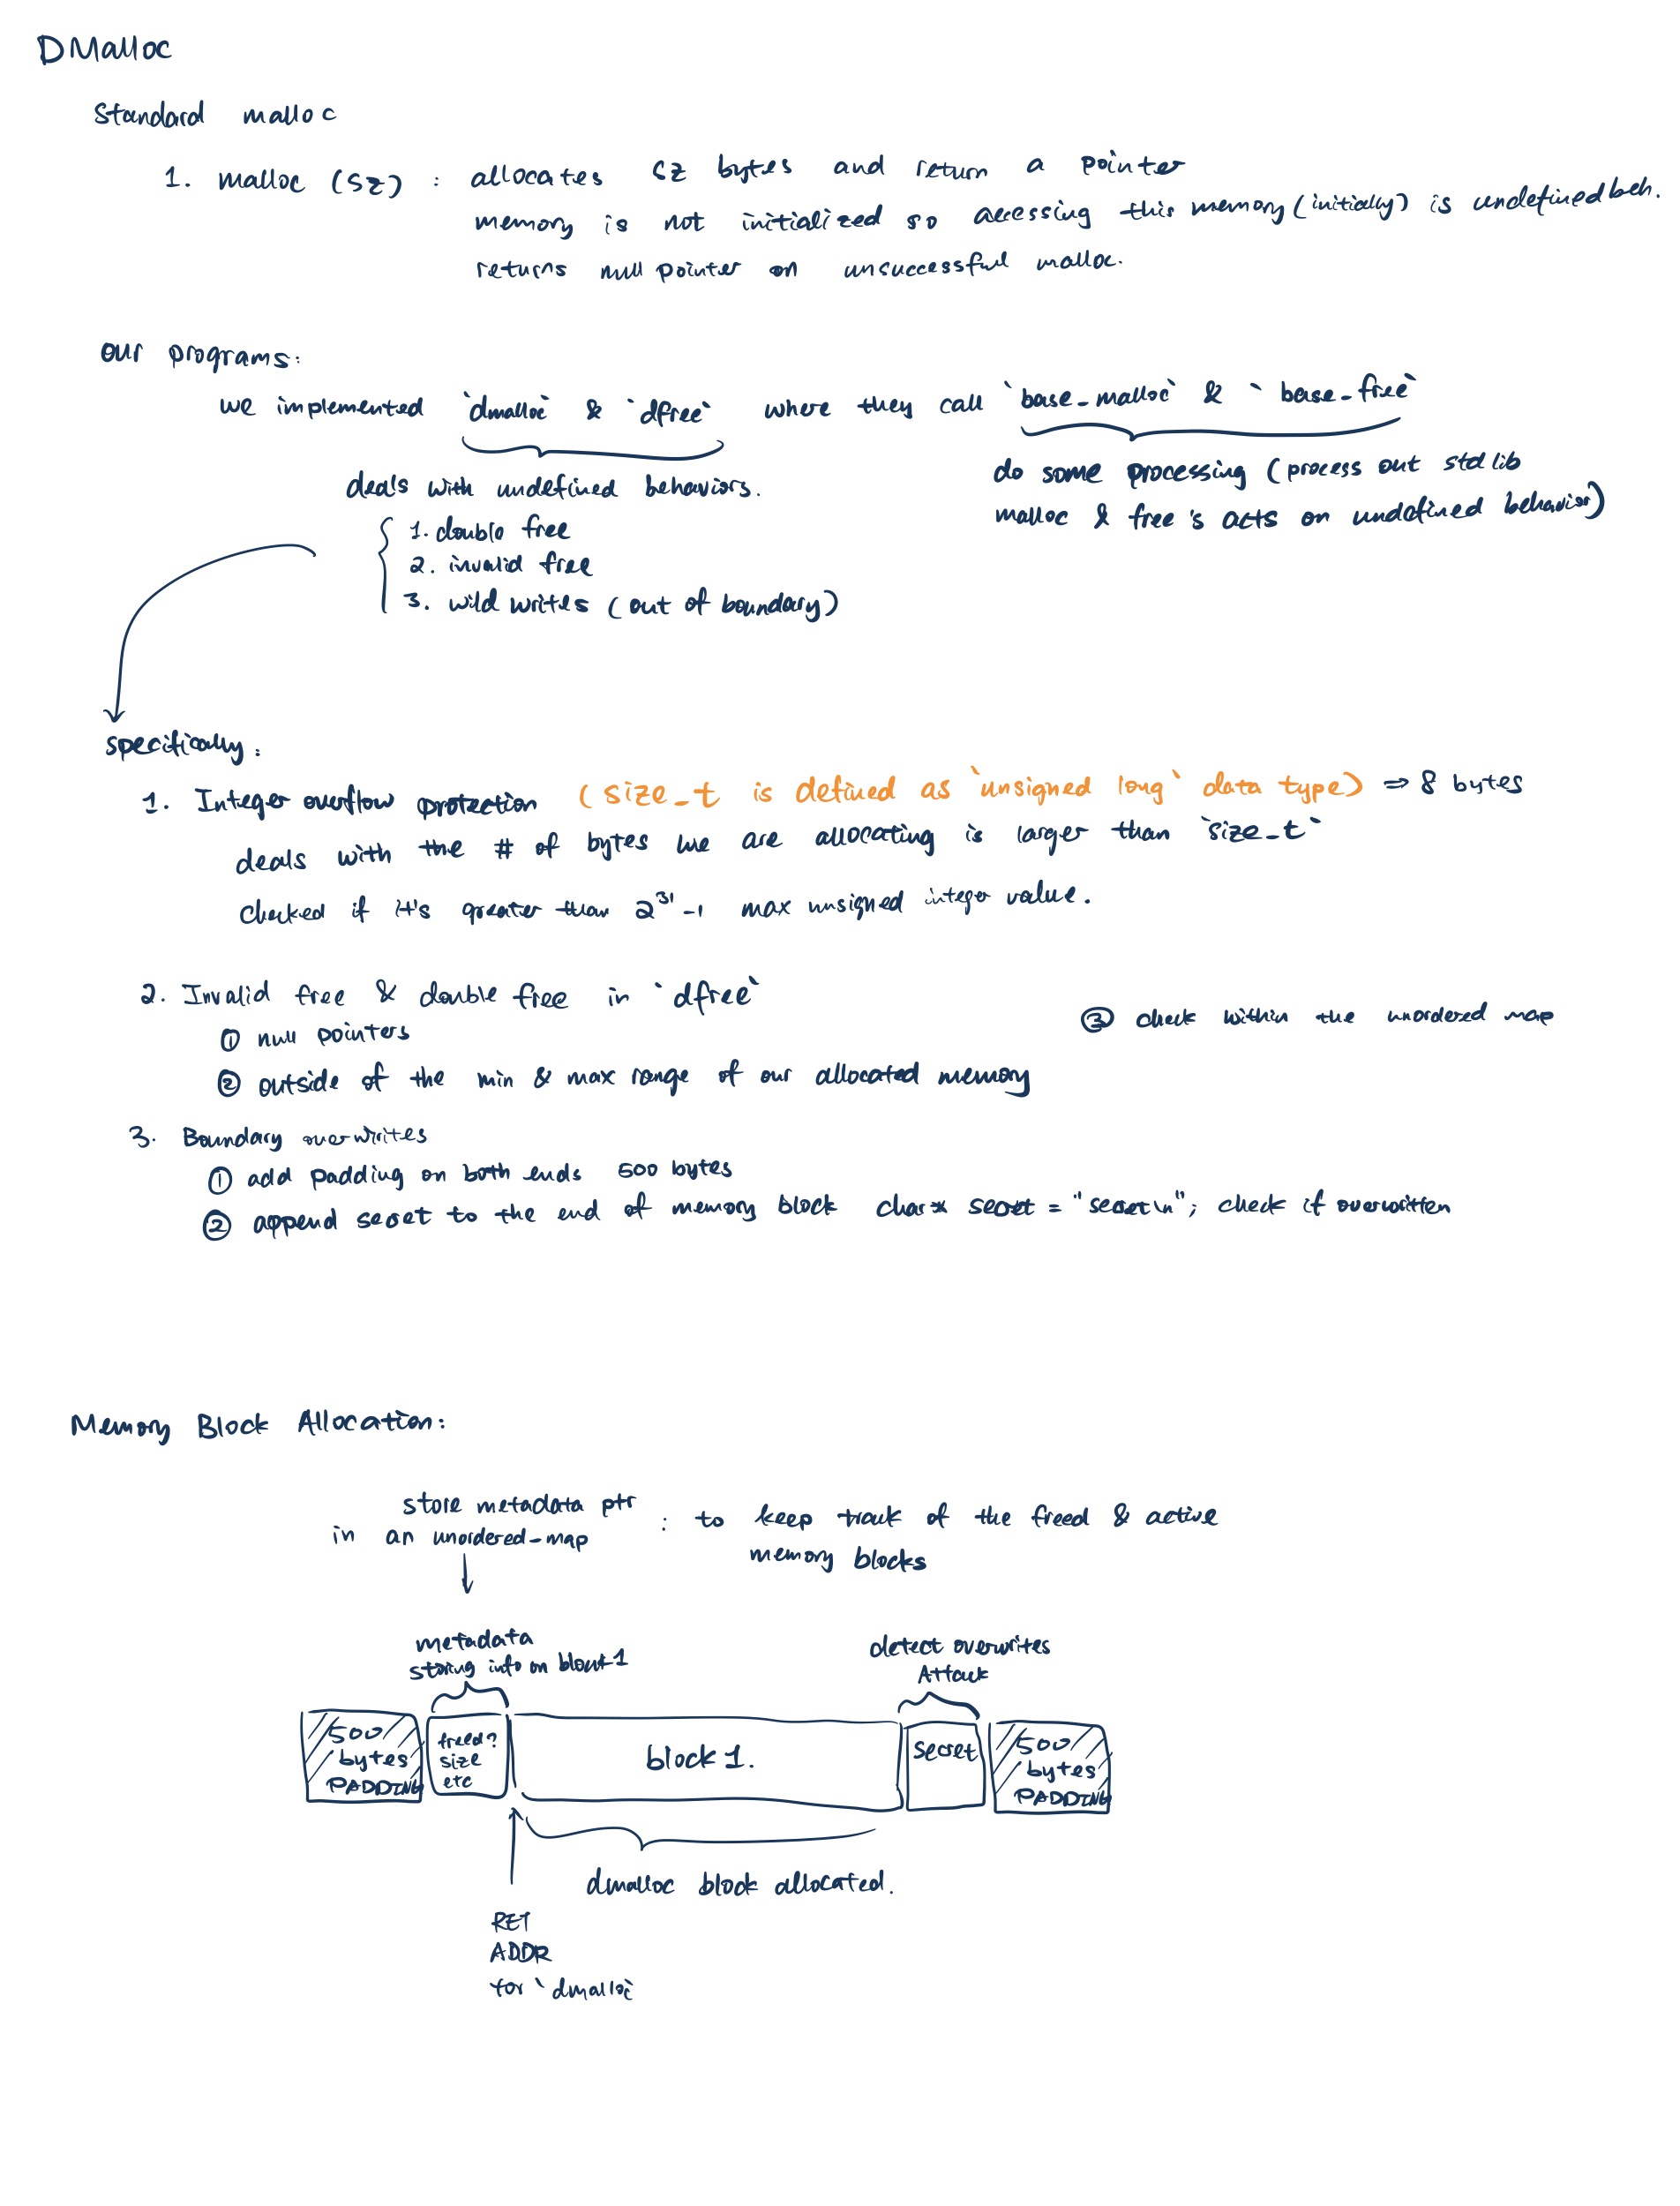 DMalloc
Standard malloc
1. malloc (sz) : allocates sz bytes and return a pointer
memory is not initialized so accessing this memory (initially) is undefined beh.
returns null pointer on unsuccessful malloc.
our programs:
we implemented `dmalloc` & `dfree` where they call `base_malloc` & `base_free`
deals with undefined behaviors.
do some processing (process out std lib
malloc & free's acts on undefined behavior)
1. double free
2. invalid free
3. wild writes (out of boundary)
specifically:
1. Integer overflow protection (size_t is defined as `unsigned long` data type) ⇒ 8 bytes
deals with the # of bytes we are allocating is larger than `size_t`
checked if it's greater than 2^31 -1 max unsigned integer value.
2. Invalid free & double free in `dfree`
① null pointers
③ check within the unordered map
② outside of the min & max range of our allocated memory
3. Boundary overwrites
① add padding on both ends 500 bytes
② append secret to the end of memory block char* secret = "secret\n"; check if overwritten
Memory Block Allocation:
store metadata ptr
in an unordered-map : to keep track of the freed & active
memory blocks
metadata
storing info on block 1
detect overwrites
Attack
500
bytes
PADDING
freed?
size
etc
block 1.
secret
500
bytes
PADDING
dmalloc block allocated.
RET
ADDR
for `dmalloc`